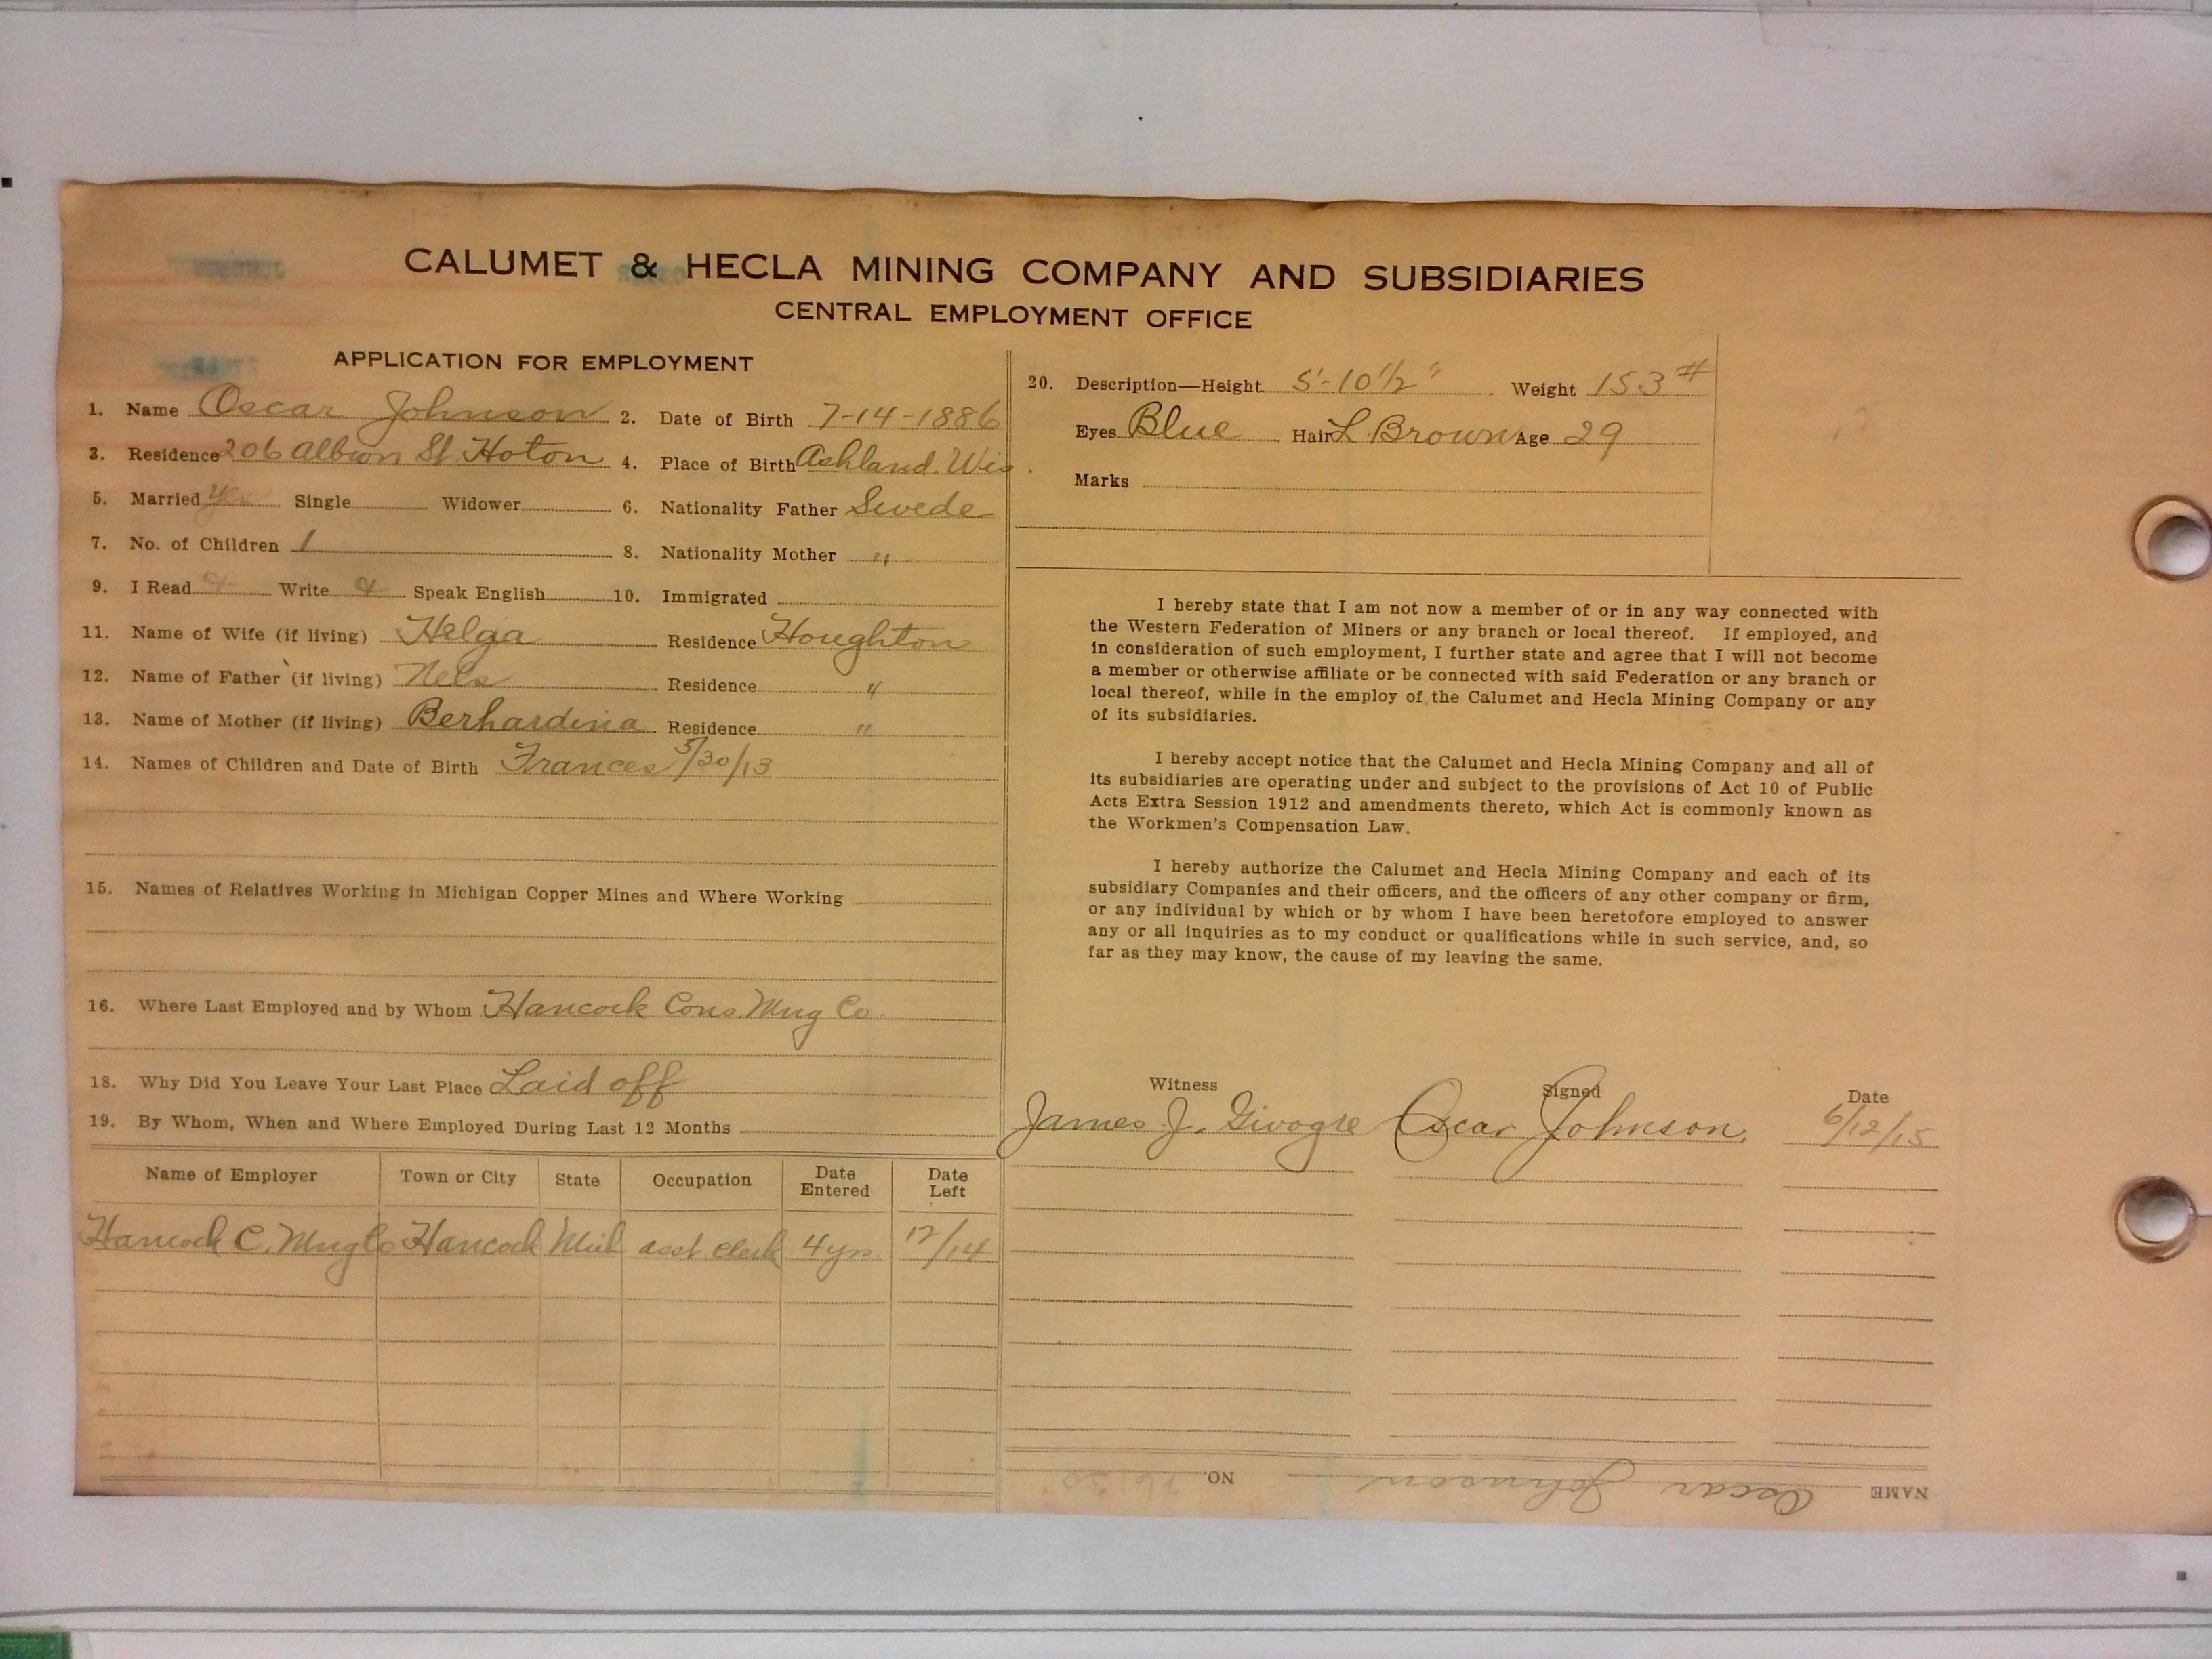 CALUMET & HECLA MINING COMPANY AND SUBSIDIARIES
CENTRAL EMPLOYMENT OFFICE
APPLICATION FOR EMPLOYMENT
1. Name Oscar Johnson 2. Date of Birth 7-14-1886
3. Residence 206 Albion St. Hoton 4. Place of Birth Ashland. Wis.
5. Married yes Single Widower 6. Nationality Father Swede
7. No. of Children 1 8. Nationality Mother "
9. I Read & Write & Speak English 10. Immigrated
11. Name of Wife (if living) Helga Residence Houghton
12. Name of Father (if living) Nels Residence "
13. Name of Mother (if living) Berhardina Residence "
14. Names of Children and Date of Birth Frances 5/30/13
15. Names of Relatives Working in Michigan Copper Mines and Where Working
16. Where Last Employed and by Whom Hancock Cons. Mng Co.
18. Why Did You Leave Your Last Place Laid off
19. By Whom, When and Where Employed During Last 12 Months
Name of Employer Town or City State Occupation Date Entered Date Left
Hancock C. Mng Co Hancock Mich asst clerk 4 yrs. 12/14
20. Description—Height 5'-10 1/2" Weight 153 #
Eyes Blue Hair L Brown Age 29
Marks
I hereby state that I am not now a member of or in any way connected with
the Western Federation of Miners or any branch or local thereof. If employed, and
in consideration of such employment, I further state and agree that I will not become
a member or otherwise affiliate or be connected with said Federation or any branch or
local thereof, while in the employ of the Calumet and Hecla Mining Company or any
of its subsidiaries.
I hereby accept notice that the Calumet and Hecla Mining Company and all of
its subsidiaries are operating under and subject to the provisions of Act 10 of Public
Acts Extra Session 1912 and amendments thereto, which Act is commonly known as
the Workmen's Compensation Law.
I hereby authorize the Calumet and Hecla Mining Company and each of its
subsidiary Companies and their officers, and the officers of any other company or firm,
or any individual by which or by whom I have been heretofore employed to answer
any or all inquiries as to my conduct or qualifications while in such service, and, so
far as they may know, the cause of my leaving the same.
Witness Signed Date
James J. Oscar Johnson. 6/12/15
NAME Oscar Johnson NO.